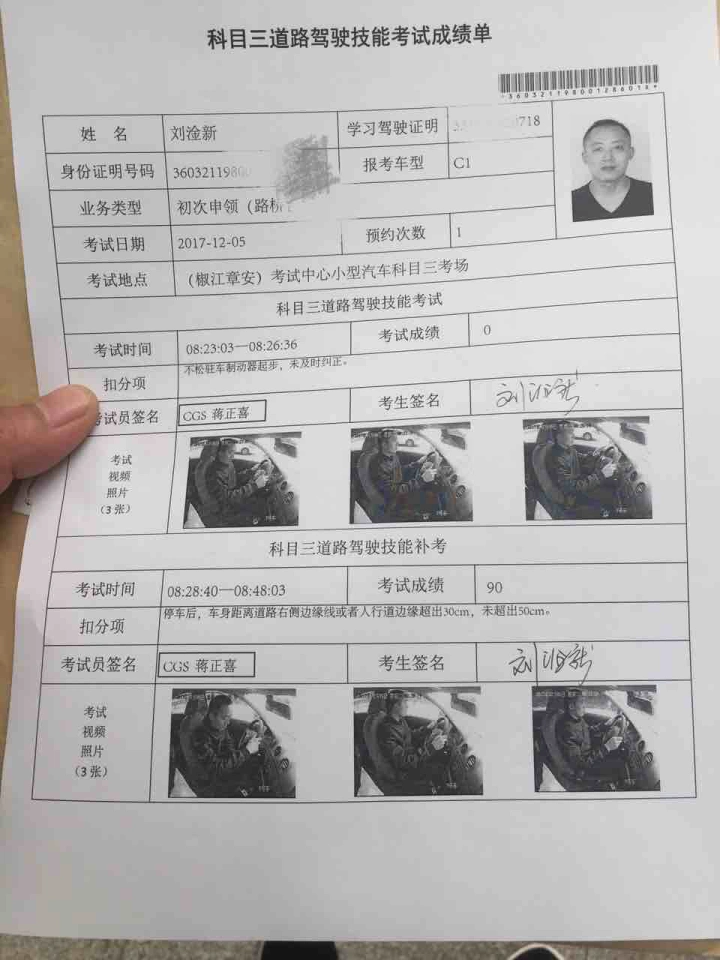 科目三道路驾驶技能考试成绩单
姓 名 刘淦新 学习驾驶证明 718
身份证明号码 报考车型 C1
业务类型 初次申领（路桥
考试日期 2017-12-05 预约次数 1
考试地点 （椒江章安）考试中心小型汽车科目三考场
科目三道路驾驶技能考试
考试时间 08:23:03—08:26:36 考试成绩 0
扣分项 不松驻车制动器起步，未及时纠正。
考试员签名 CGS 蒋正喜 考生签名
考试
视频
照片
（3 张）
科目三道路驾驶技能补考
考试时间 08:28:40—08:48:03 考试成绩 90
扣分项 停车后，车身距离道路右侧边缘线或者人行道边缘超出30cm，未超出50cm。
考试员签名 CGS 蒋正喜 考生签名
考试
视频
照片
（3 张）